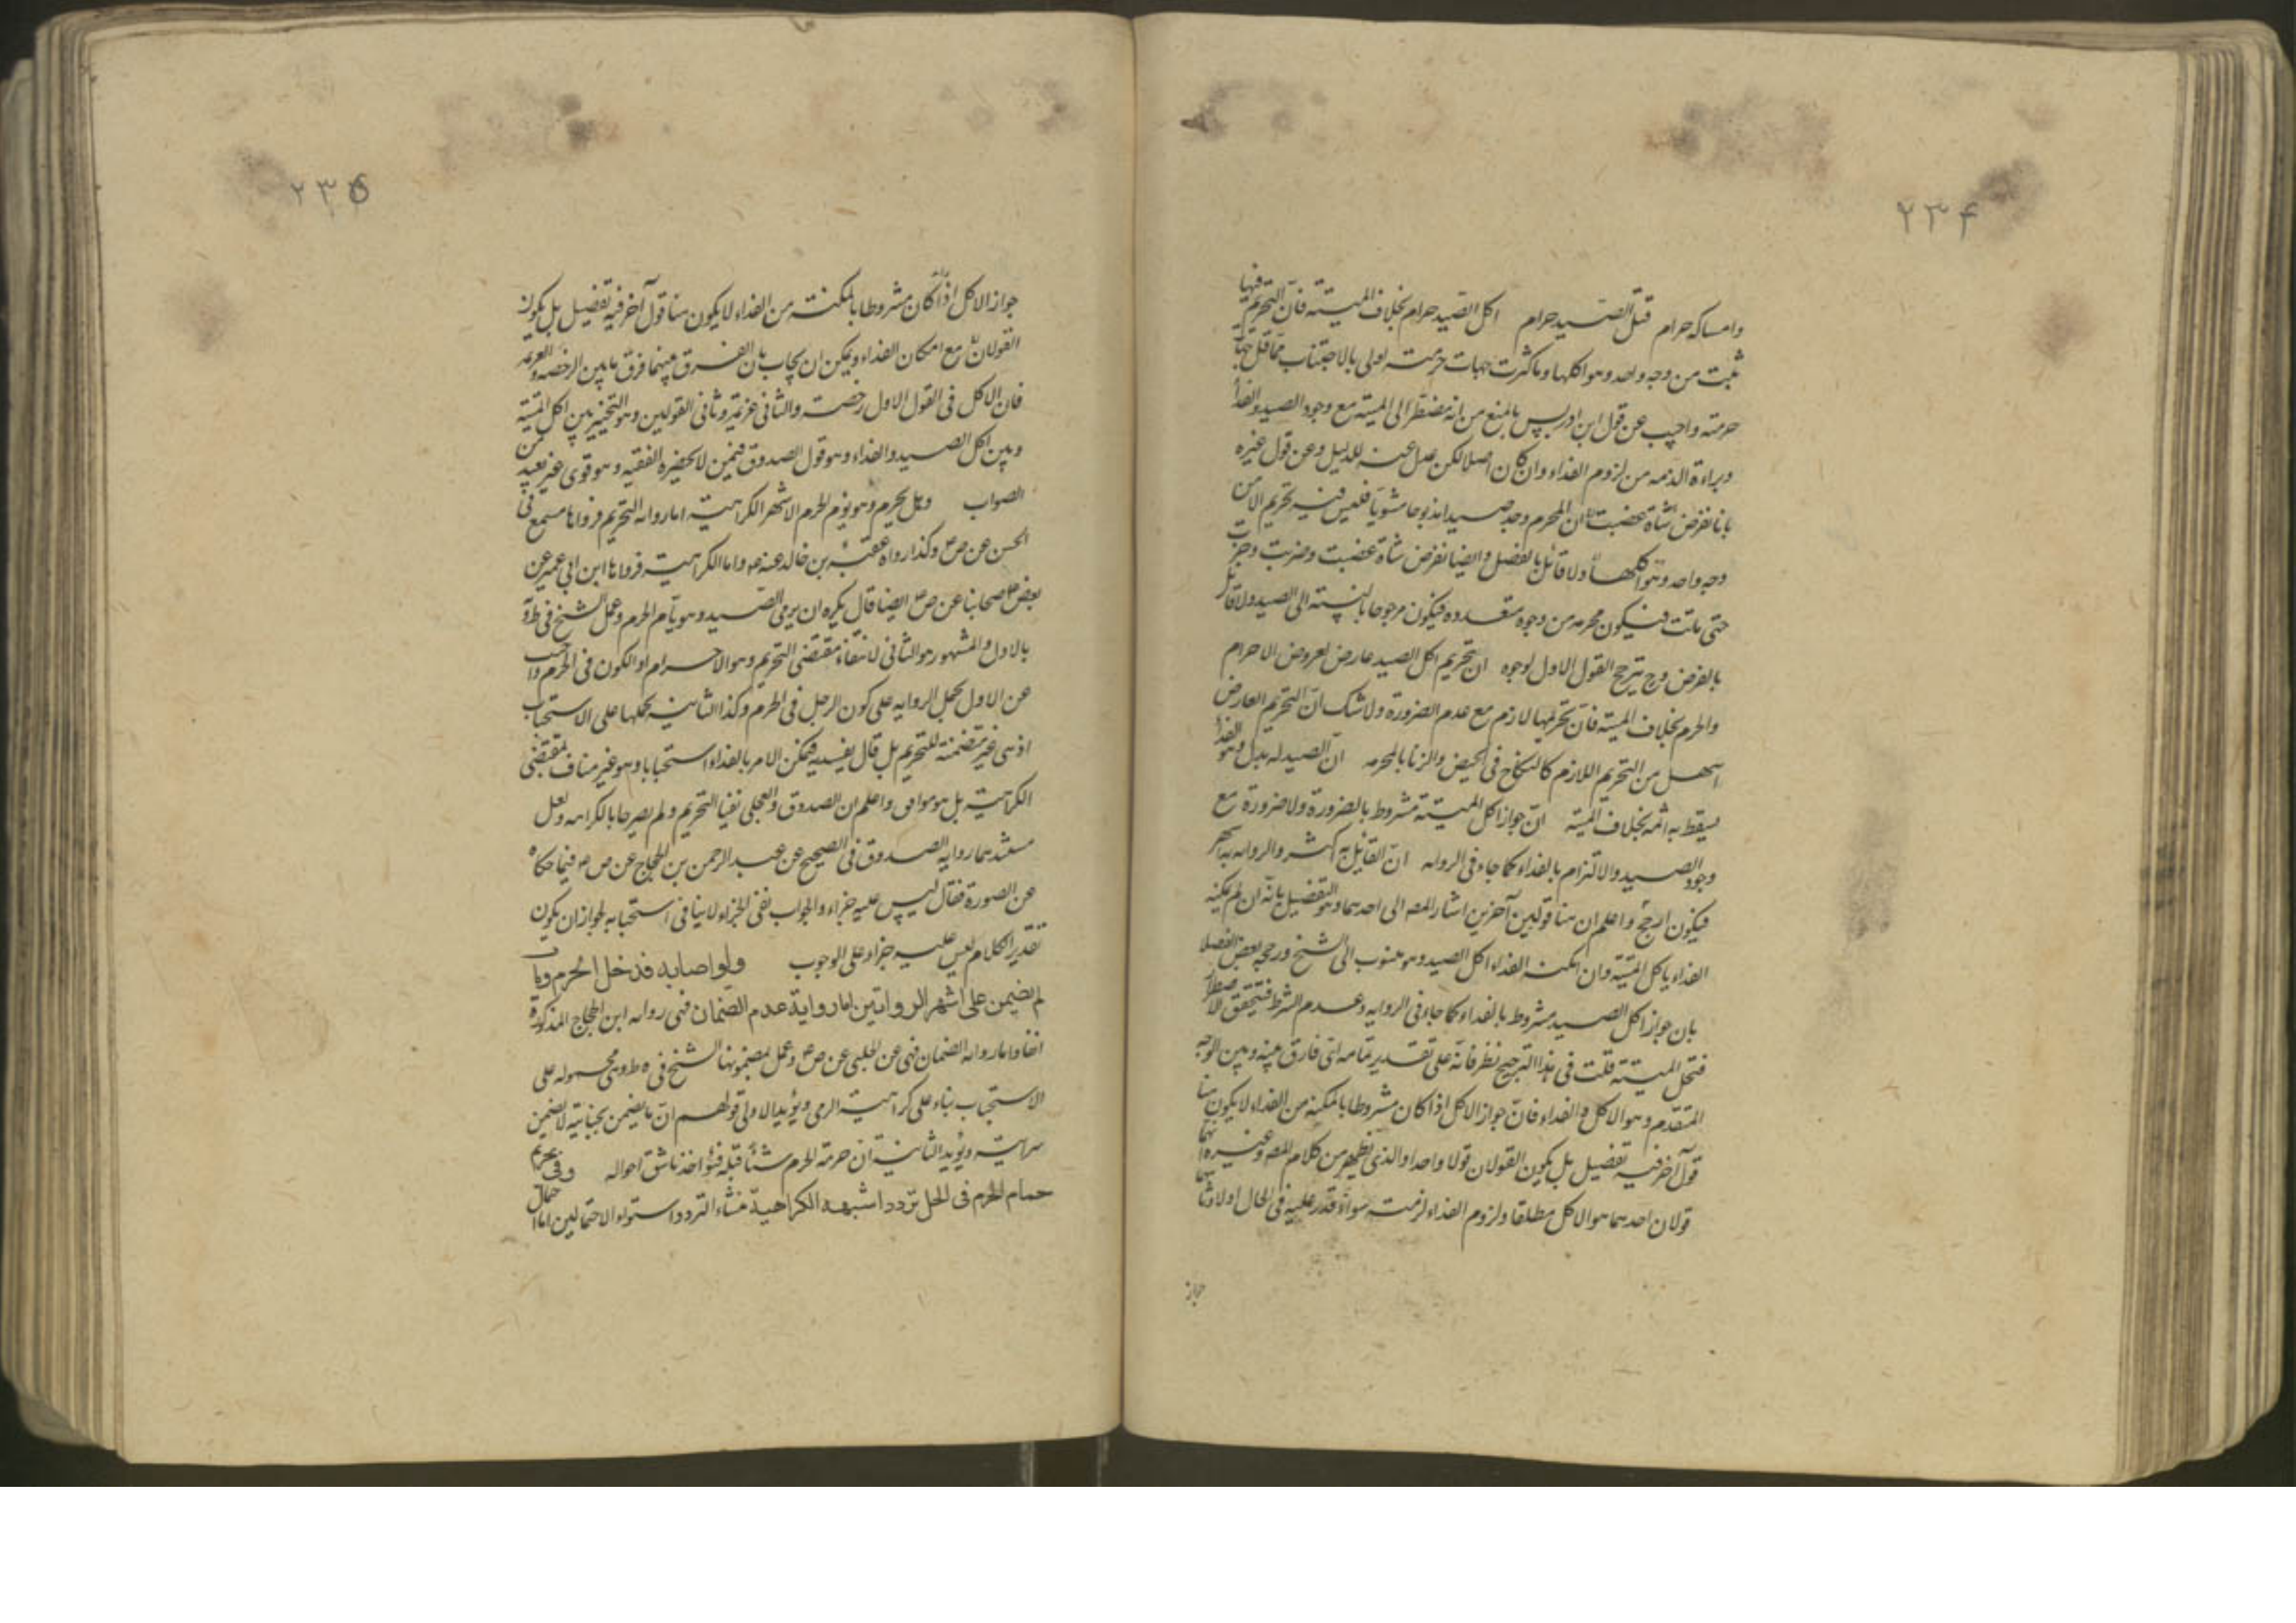 ٢٣۴
وامساكه حرام قتل الصيد حرام اكل الصيد حرام بخلاف الميتة فان التحريم فيها
ثبت من وجه واحد وهو اكلها وما كثرت جهات حرمته اولى بالاجتناب مما قل جهات
حرمته واجيب عن قول ابن ادريس بالمنع من انه مضطر الى الميتة مع وجود الصيد والفداء
وبراءة الذمه من لزوم الفداء وان كان اصلا لكن عدل عنه للدليل وعن قول غيره
بانا نفرض شاة غصبت ان المحرم وجد صيدا مذبوحا مشويا فليس فيه تحريم الا من
وجه واحد وهو اكلها ولا قائل بالفصل وايضا نفرض شاة غصبت وضربت وجرت
حتى ماتت فيكون محرمه من وجوه متعدده فيكون مرجوحا بالنسبة الى الصيد ولا قائل
بالفرض وح يترجح القول الاول لوجوه ان تحريم اكل الصيد عارض لعروض الاحرام
والحرم بخلاف الميتة فان تحريمها لازم مع عدم الضرورة ولا شك ان التحريم العارض
اسهل من التحريم اللازم كالنكاح في الحيض والزنا بالمحرمه ان الصيد له بدل وهو الفداء
يسقط به اثمه بخلاف الميتة ان جواز اكل الميتة مشروط بالضرورة ولا ضرورة مع
وجود الصيد والالتزام بالفداء كما جاء في الروايه ان القائل به اكثر والروايه به اشهر
فيكون ارجح واعلم ان هنا قولين آخرين اشار المصه الى احدهما وهو التفصيل بانه ان لم يمكنه
الفداء ياكل الميتة وان امكنه الفداء اكل الصيد وهو منسوب الى الشيخ ورجحه بعض الفضلا
بان جواز اكل الصيد مشروط بالفداء كما جاء في الروايه وعدم الشرط فتحقق الاضطرار
فتحل الميتة قلت في هذا الترجيح نظر فانه على تقدير تمامه اى فارق بينه وبين الوجه
المتقدم وهو الاكل والفداء فان جواز الاكل اذا كان مشروطا بالمكنة من الفداء لا يكون هنا
قول آخر فيه تفصيل بل يكون القولان قولا واحدا والذى يظهر من كلام المصه وغيره انهما
قولان احدهما هو الاكل مطلقا ولزوم الفداء لذمته سواء قدر عليه في الحال او لا وثانيهما
جواز
٢٣٥
جواز الاكل اذا كان مشروطا بالمكنة من الفداء لا يكون هنا قول آخر فيه تفصيل بل يكون
القولان مع امكان الفداء ويمكن ان يجاب بان الفرق بينهما فرق مابين الرخصه والعزيمه
فان الاكل في القول الاول رخصة والثانى عزيمة وثانى القولين وهو التخيير بين اكل الميتة
وبين اكل الصيد والفداء وهو قول الصدوق فيمن لا يحضره الفقيه وهو قوى غير بعيد من
الصواب وهل يحرم وهو يؤم الحرم الاشهر الكراهية اما روايه التحريم فرواها مسمع في
الحسن عن ص ع وكذا رواه عقبة بن خالد عنه ع واما الكراهية فرواها ابن ابى عمير عن
بعض اصحابنا عن ص ع ايضا قال يكره ان يرمى الصيد وهو يأم الحرم وعمل الشيخ في ط و
بالاول والمشهور هو الثانى لانتفاء مقتضى التحريم وهو الاحرام او الكون في الحرم واجيب
عن الاول بحمل الروايه على كون الرجل في الحرم وكذا الثانية بحملها على الاستحباب
اذ هى غير متضمنة للتحريم بل قال يفديه فيمكن الامر بالفداء استحبابا وهو غير مناف لمقتضى
الكراهية بل هو موافق واعلم ان الصدوق والعجلى نفيا التحريم ولم يصرحا بالكراهه ولعل
مستندهما روايه الصدوق في الصحيح عن عبد الرحمن بن الحجاج عن ص ع فيما حكاه
عن الصورة فقال ليس عليه جزاء والجواب نفى الجزاء لا ينافى استحبابه لجواز ان يكون
تقدير الكلام ليس عليه جزاء على الوجوب ولو اصابه فدخل الحرم ومات
لم يضمن على اشهر الروايتين اما رواية عدم الضمان فهى روايه ابن الحجاج المذكورة
آنفا واما روايه الضمان فهى عن الحلبى عن ص ع وعمل بمضمونها الشيخ في ه ط وهى محموله على
الاستحباب بناء على كراهية الرمى ويؤيد الاولى قولهم ان ما يضمن بجنايته لا يضمن
سرايته ويؤيد الثانية ان حرمة الحرم قبله فيؤاخذ باشق احواله وفى تحريم
حمام الحرم فى الحل تردد اشبهه الكراهية منشاء التردد استواء الاحتمالين اما احتمال